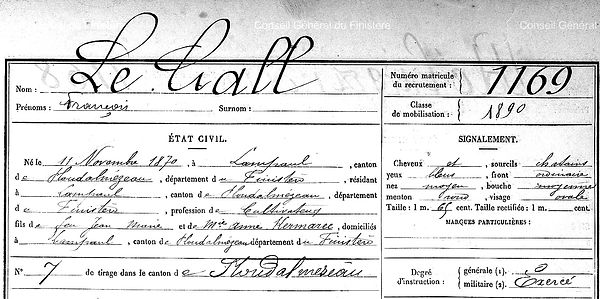 Conseil Général du Finistère
Conseil Général du Finistère
Nom : Le Gall
Prénoms : François Surnom :
Numéro matricule du recrutement : 1169
Classe de mobilisation : 1890
ÉTAT CIVIL.
Né le 11 Novembre 1870, à Lampaul, canton
de Ploudalmézeau, département du Finistère, résidant
à Lampaul, canton de Ploudalmézeau, département
du Finistère, profession de Cultivateur
fils de feu Jean Marie et de Mie Anne Kermarec, domiciliés
à Lampaul, canton de Ploudalmézeau département du Finistère
N° 7 de tirage dans le canton de Ploudalmézeau
SIGNALEMENT.
Cheveux et sourcils chatains
yeux bleus, front ordinaire
nez moyen, bouche moyenne
menton rond, visage ovale
Taille : 1 m. 65 cent. Taille rectifiée : 1 m. cent.
MARQUES PARTICULIÈRES :
Degré d'instruction :
générale (1). 3
militaire (2). Exercé